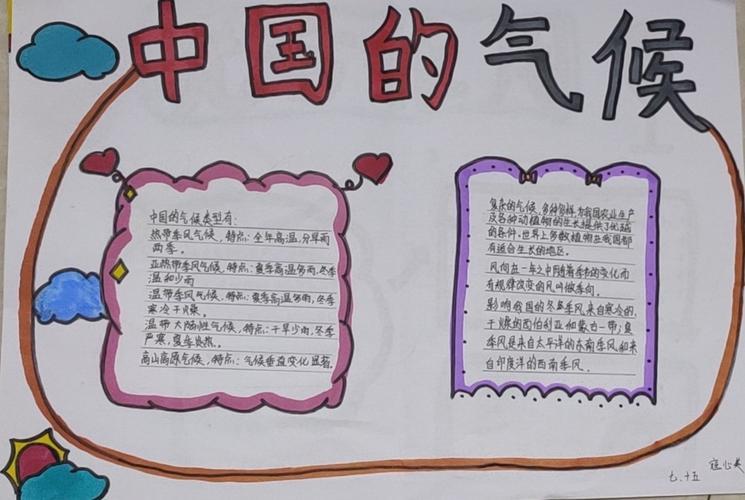 中国的气候
中国的气候类型有:
热带季风气候,特点:全年高温,分旱雨
两季。
亚热带季风气候,特点:夏季高温多雨,冬季
温和少雨
温带季风气候,特点:夏季高温多雨,冬季
寒冷干燥。
温带大陆性气候,特点:干旱少雨,冬季
严寒,夏季炎热。
高山高原气候,特点:气候垂直变化显著。
复杂的气候,多种多样,为我国农业生产
及各种动植物的生长提供了优越
的条件。世界上多数植物在我国都
有适合生长的地区。
风向在一年之中随着季节的变化而
有规律改变的风叫做季风。
影响我国的冬季风来自寒冷的、
干燥的西伯利亚和蒙古一带;夏
季风是来自太平洋的东南季风和来
自印度洋的西南季风。
七.十五